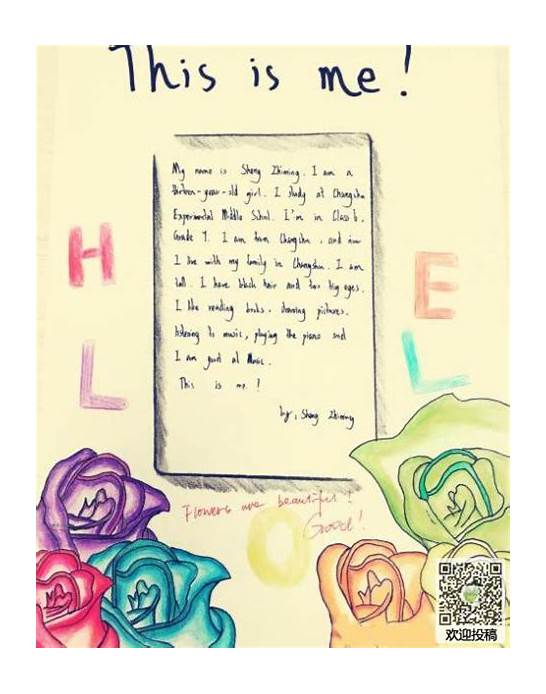 This is me!
My name is Sheng Zhiming. I am a
thirteen-year-old girl. I study at Changsha
Experimental Middle School. I'm in Class 6,
Grade 7. I am from Changsha, and now
I live with my family in Changsha. I am
tall. I have black hair and two big eyes.
I like reading books, drawing pictures,
listening to music, playing the piano and
I am good at Music.
This is me!
by, Sheng Zhiming
H
E
L
L
O
Flowers are beautiful!
Good!
欢迎投稿